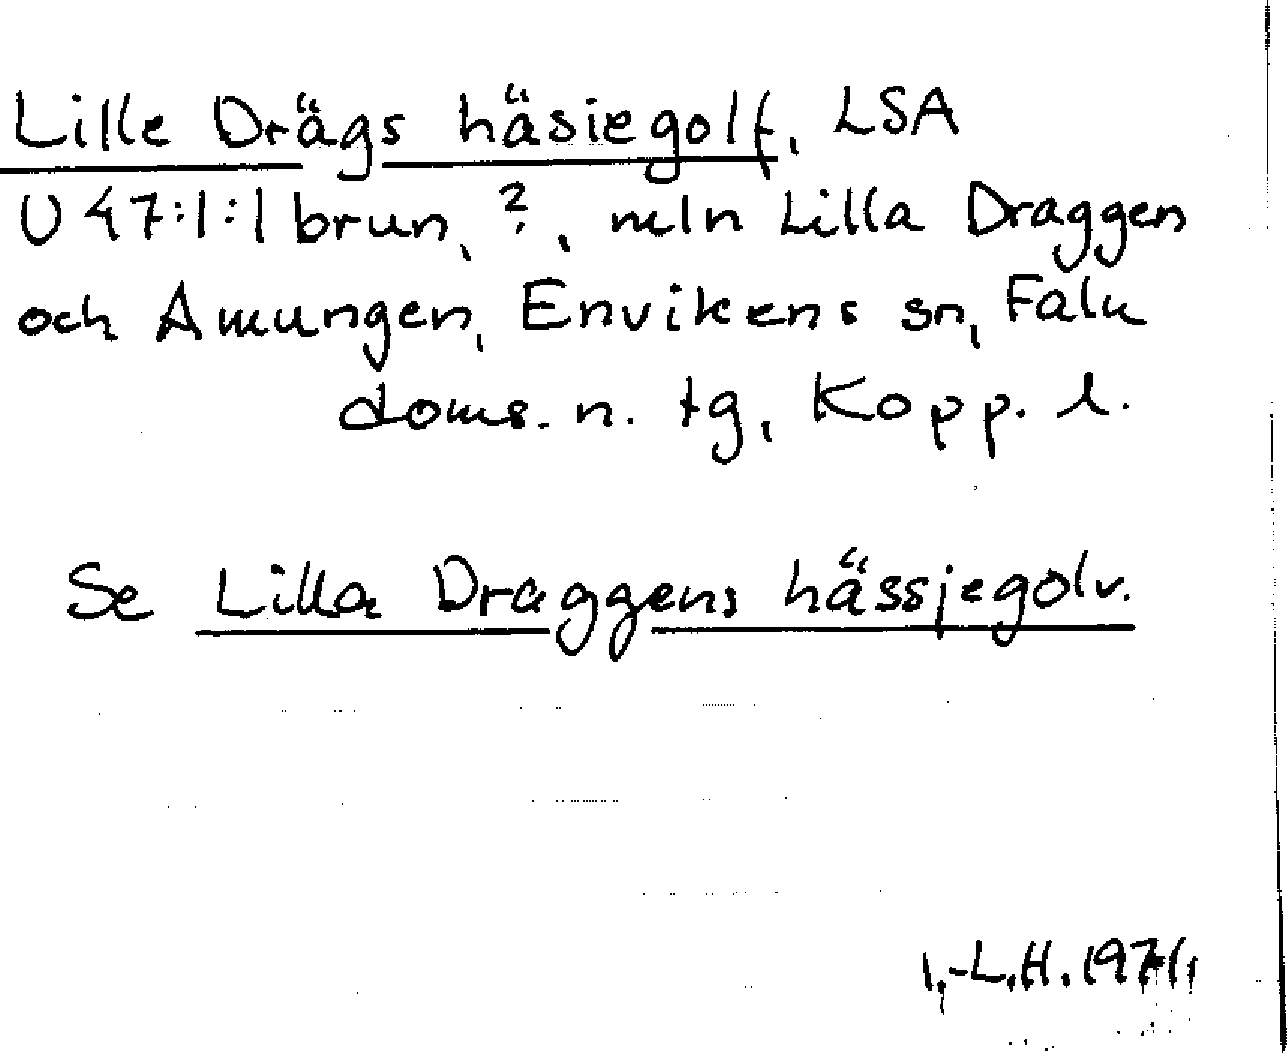 Lille Drägs häsiegolf, LSA
U 47:1:1 brun, ?, mln Lilla Draggen
och Amungen, Envikens sn, Falu
doms. n. tg, Kopp. l.
Se Lilla Draggens hässjegolv.
I.-L.H. 1971